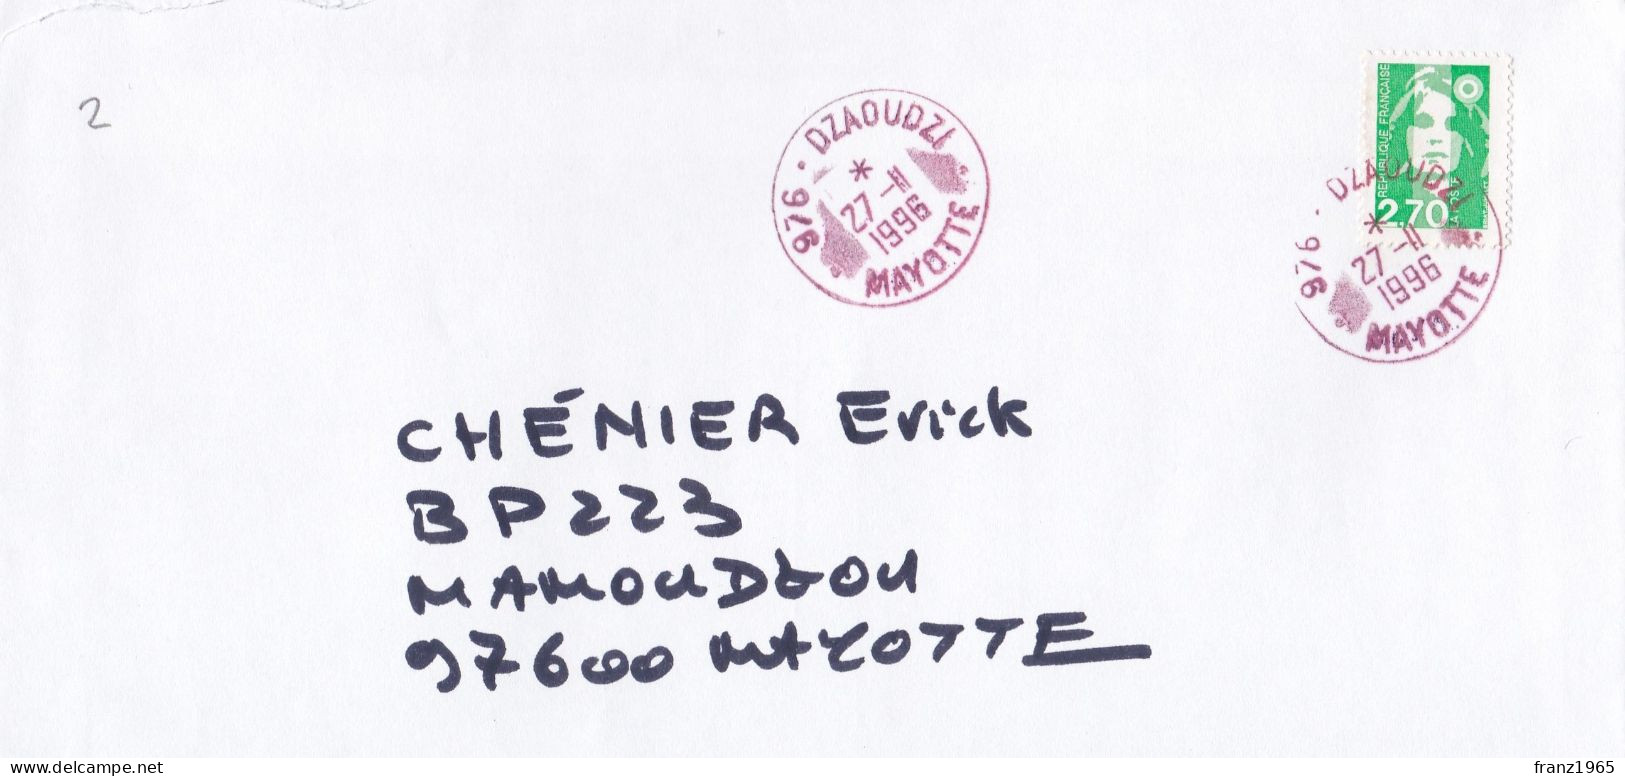 2
DZAOUDZI
*
27-11
1996
976
MAYOTTE
RÉPUBLIQUE FRANÇAISE
2,70
DZAOUDZI
*
27-11
1996
976
MAYOTTE
CHÉNIER Erick
BP223
MAMOUDZOU
97600 MAYOTTE
delcampe.net
franz1965